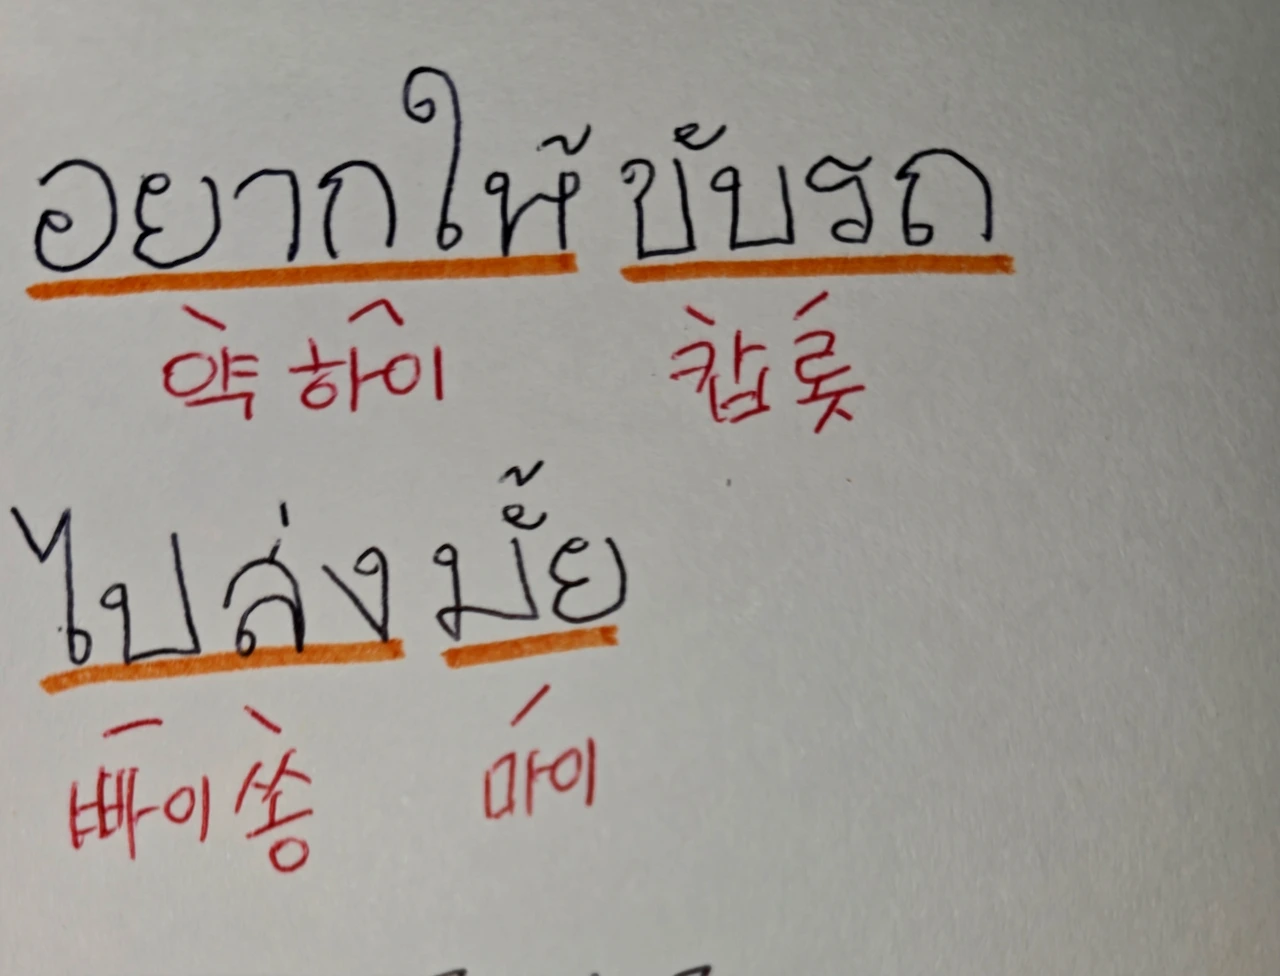 อยากให้ ขับรถ
약 하이 캅 롯
ไปส่ง มั้ย
빠이 쏭 마이